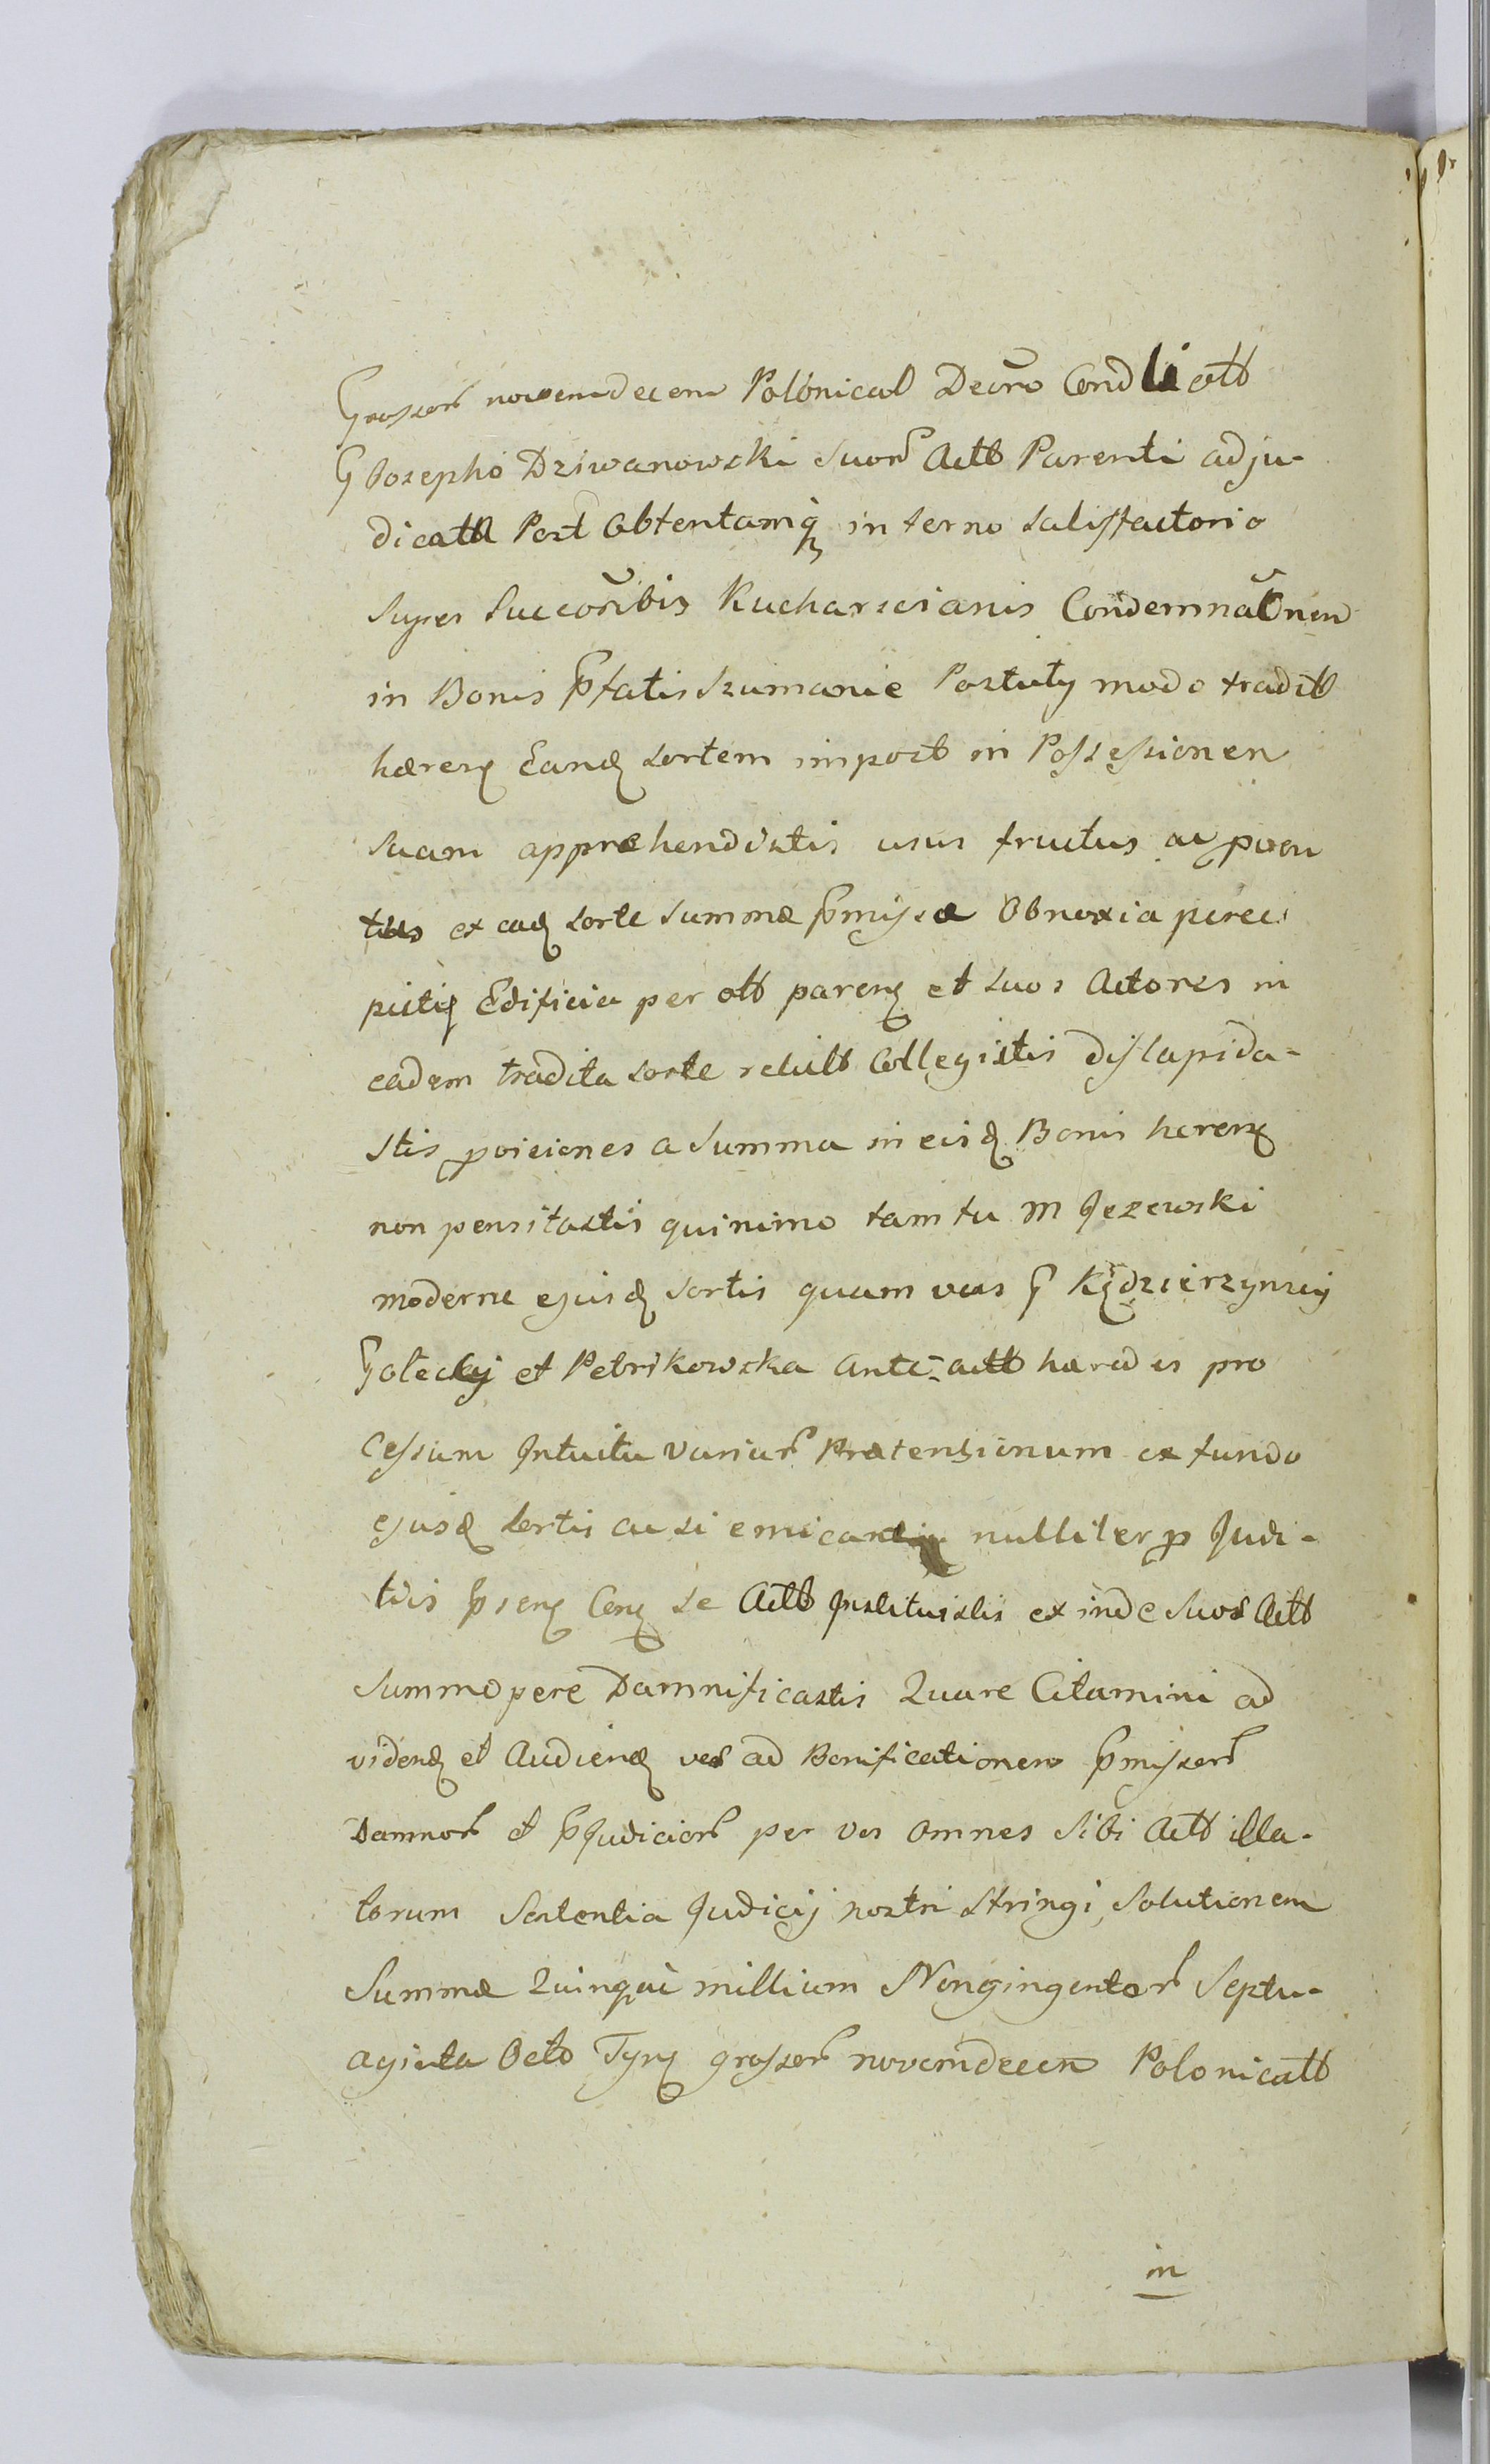 Grosser novemdecem Polonical Decro Cond li ott
G Josepho Dziwanowski suor Actt Parenti adju-
dicatt Post Obtentamq in terno satisfactorio
super Succoribis Kucharscianis Condemnaonem
in Bonis pfatis Szumanie Postuty modo tradtt
hæreng Eandg sortem import in Possessionem
suam appræhendistis usus fructus ac proven
tus ex eadg sorte summæ pmissæ Obnoxia perce-
pistig Edificia per ott pareng et suos Actores in
eadem tradita sorte relictt Collegistis dislapida-
stis poisiones a summa in eisdg Bonis hereng
non pensitastis quinimo tam tu M Jezewski
moderne ejusdg sortis quam vos G Kędzierzynscij
Golecky et Petrikowska Ante-actt hæredes pro
cessum Intuitu variar Prætensionum ex fundo
ejusdg sortis ac si emicang nulliter p Judi-
tiis pseng Ceng se Actt Instituistis ex inde suos Actt
summopere Damnificastis Quare Citamini ad
videndg et Audiendg vos ad Bonificationem pmisser
Damnor et pjudicior per vos omnes sibi Actt illa-
torum Sententia Judicij nostri stringi solutionem
Summæ Quinque millium Nongingentor Septu-
aginta Octo Tyng grosser novemdecem Polonicatt
in